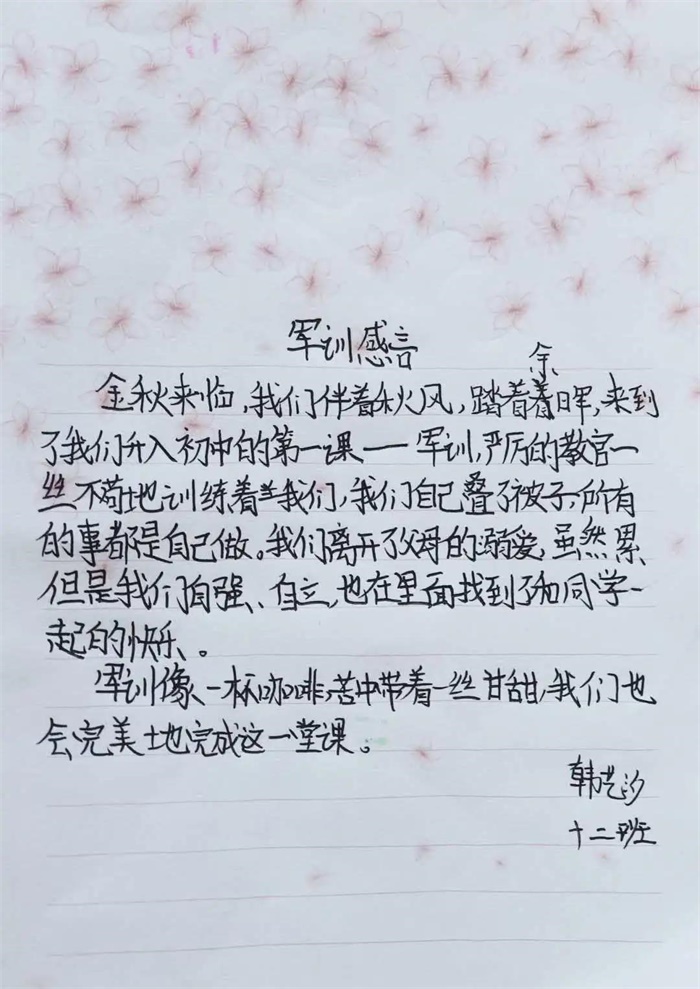 军训感言
金秋来临,我们伴着秋风,踏着余晖,来到
了我们升入初中的第一课——军训,严厉的教官一
丝不苟地训练着我们,我们自己叠了被子,所有
的事都是自己做。我们离开了父母的溺爱,虽然累,
但是我们自强、自立,也在里面找到了和同学一
起的快乐、。
军训像一杯咖啡,苦中带着一丝甘甜,我们也
会完美地完成这一堂课。
韩艺汐
十二班